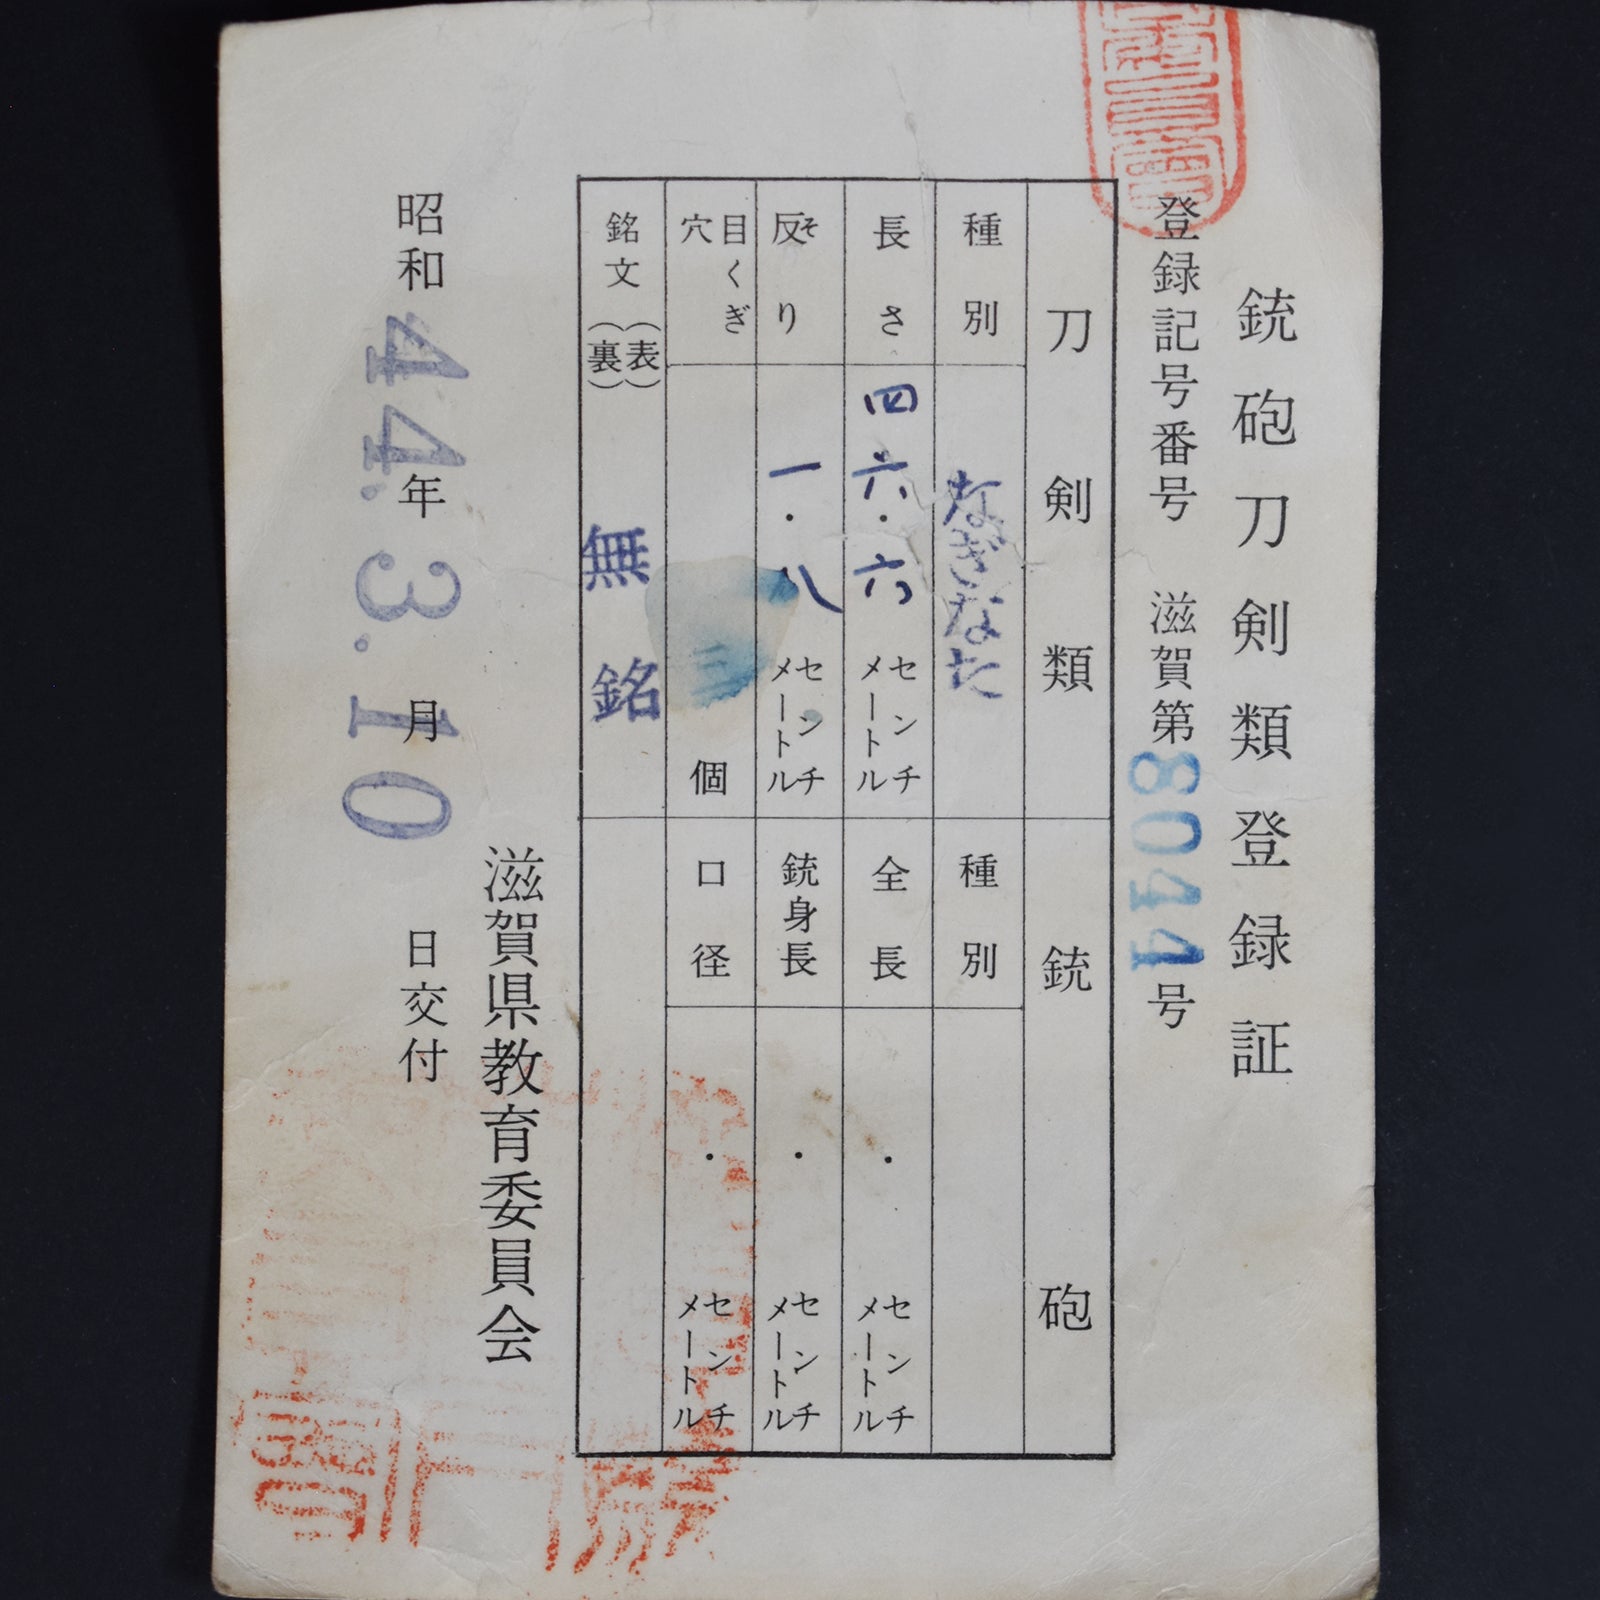 銃砲刀剣類登録証
登録記号番号 滋賀第8044号
刀剣類
種別 なぎなた
長さ 四六.六 センチメートル
反り そ 一.八 センチメートル
目くぎ穴 三 個
銘文(表)(裏) 無銘
銃砲
種別
全長 . センチメートル
銃身長 . センチメートル
口径 . センチメートル
滋賀県教育委員会
昭和44.年3.月10日交付